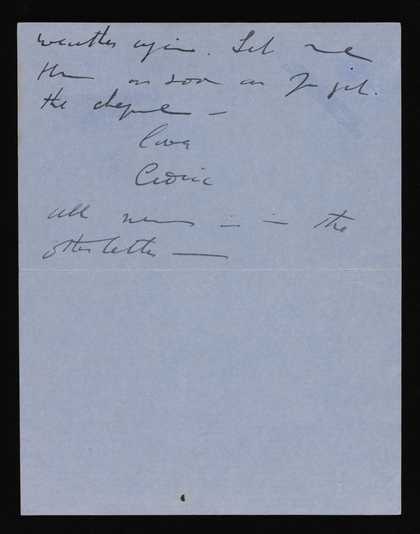 weather again. Let me
as soon as you get
the cheque —
love
Cedric
all news is in the
other letter —